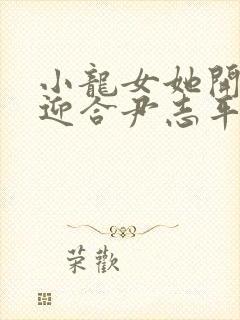 小龍女她開
迎合尹志平
荣歡